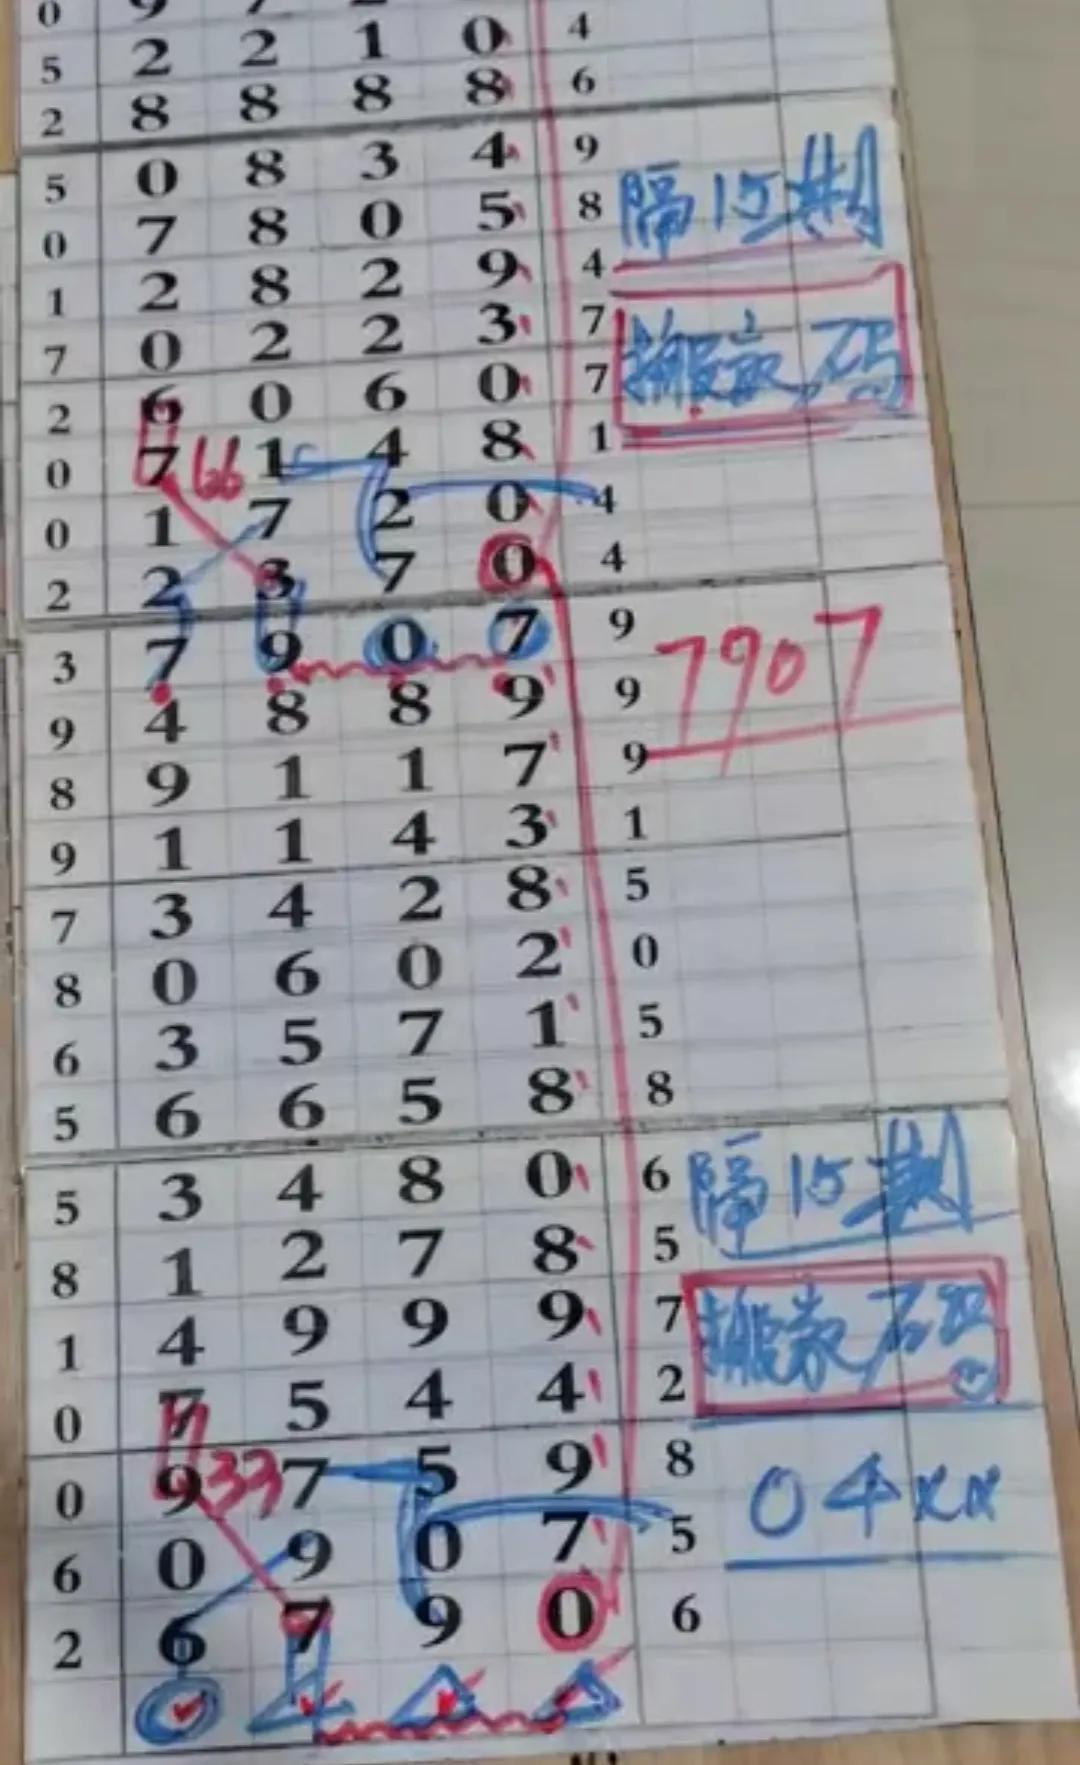 5 2 2 1 0 4
2 8 8 8 8 6
5 0 8 3 4 9
0 7 8 0 5 8
隔15期
1 2 8 2 9 4
7 0 2 2 3 7
2 6 0 6 0 7
搬家码
0 7 66 1 4 8 1
0 1 7 2 0 4
2 2 3 7 0 4
3 7 9 0 7 9
7907
9 4 8 8 9 9
8 9 1 1 7 9
9 1 1 4 3 1
7 3 4 2 8 5
8 0 6 0 2 0
6 3 5 7 1 5
5 6 6 5 8 8
5 3 4 8 0 6
隔15期
8 1 2 7 8 5
1 4 9 9 9 7
搬家码
0 7 5 4 4 2
0 9 33 7 5 9 8
04xx
6 0 9 0 7 5
2 6 7 9 0 6